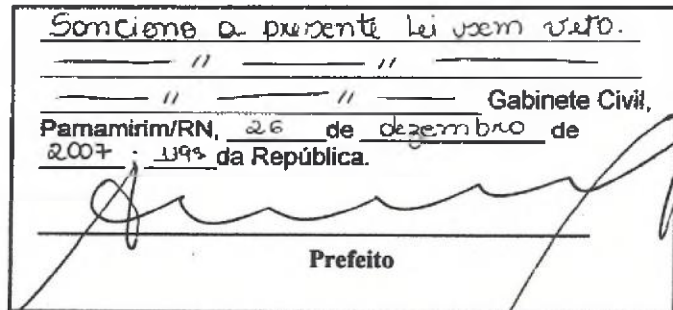 Sanciono a presente Lei sem veto.
— " — " —
— " — " — Gabinete Civil,
Parnamirim/RN, 26 de dezembro de
2007 ; 119º da República.
Prefeito